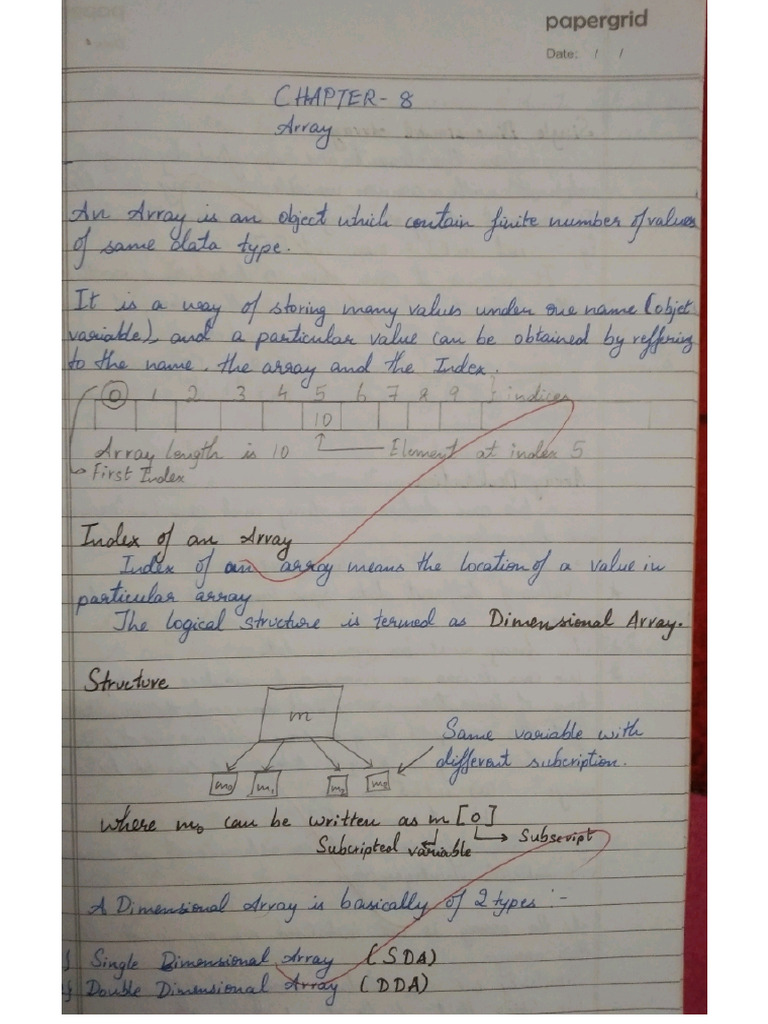 papergrid
Date: / /
CHAPTER-8
Array
An Array is an object which contain finite number of values
of same data type.
It is a way of storing many values under one name (objet
variable), and a particular value can be obtained by reffering
to the name, the array and the Index.
0 1 2 3 4 5 6 7 8 9 } indices
10
Array length is 10
Element at index 5
First Index
Index of an Array
Index of an array means the location of a value in
particular array
The logical structure is termed as Dimensional Array.
Structure
m
Same variable with
different subcription.
m0 m1 m2 m3
where m0 can be written as m[0]
Subscript
Subcripted variable
A Dimensional Array is basically of 2 types :-
Single Dimensional Array (SDA)
Double Dimensional Array (DDA)